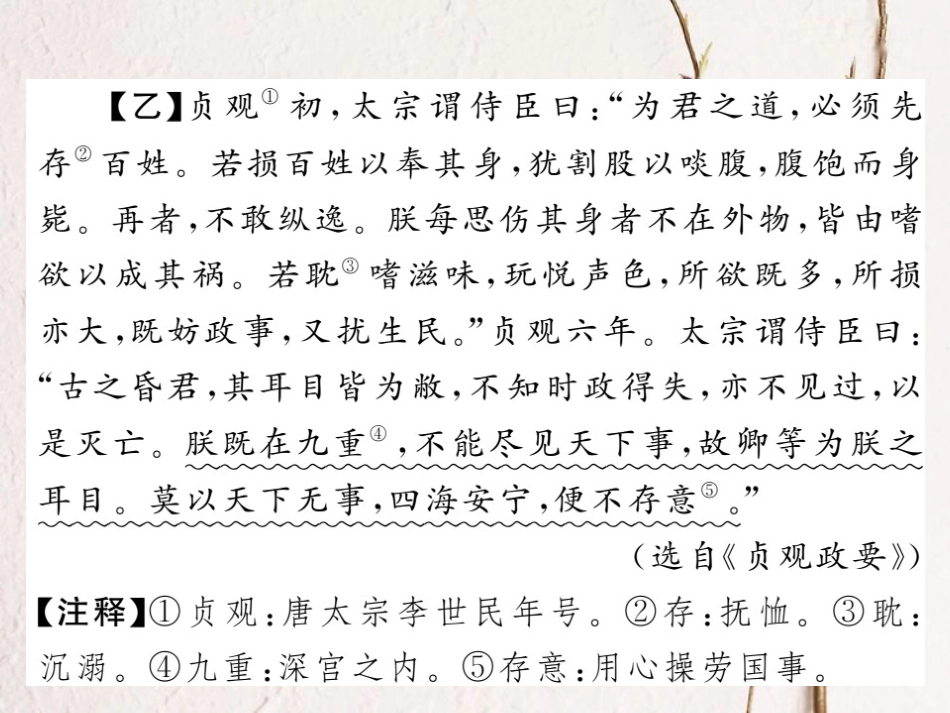 【乙】贞观①初,太宗谓侍臣曰:“为君之道,必须先
存②百姓。若损百姓以奉其身,犹割股以啖腹,腹饱而身
毙。再者,不敢纵逸。朕每思伤其身者不在外物,皆由嗜
欲以成其祸。若耽③嗜滋味,玩悦声色,所欲既多,所损
亦大,既妨政事,又扰生民。”贞观六年。太宗谓侍臣曰:
“古之昏君,其耳目皆为敝,不知时政得失,亦不见过,以
是灭亡。朕既在九重④,不能尽见天下事,故卿等为朕之
耳目。莫以天下无事,四海安宁,便不存意⑤。”
(选自《贞观政要》)
【注释】①贞观:唐太宗李世民年号。②存:抚恤。③耽:
沉溺。④九重:深宫之内。⑤存意:用心操劳国事。